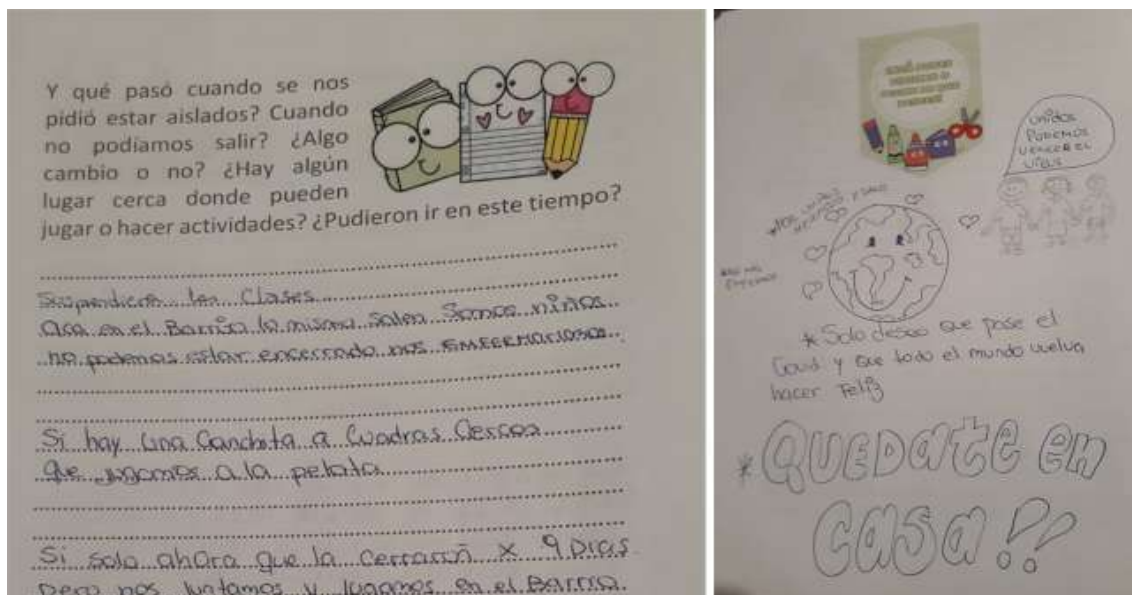 Y qué pasó cuando se nos
pidió estar aislados? Cuando
no podíamos salir? ¿Algo
cambio o no? ¿Hay algún
lugar cerca donde pueden
jugar o hacer actividades? ¿Pudieron ir en este tiempo?
Suspendieron las Clases
Aca en el Barrio lo mismo Salen Somos niños
no podemos estar encerrado nos EMFERMARIAMOS
Si hay una Canchita a Cuadras Cercas
que jugamos a la pelota
Si solo ahora que la cerraron X 9 Dias
Pero nos Juntamos y Jugamos en el Barrio.
Unidos
PODEMOS
VENCER EL
VIRUS
* Solo deseo que pase el
Covid y que todo el mundo vuelva
hacer Feliz
* QUEDATE EN
CASA!!